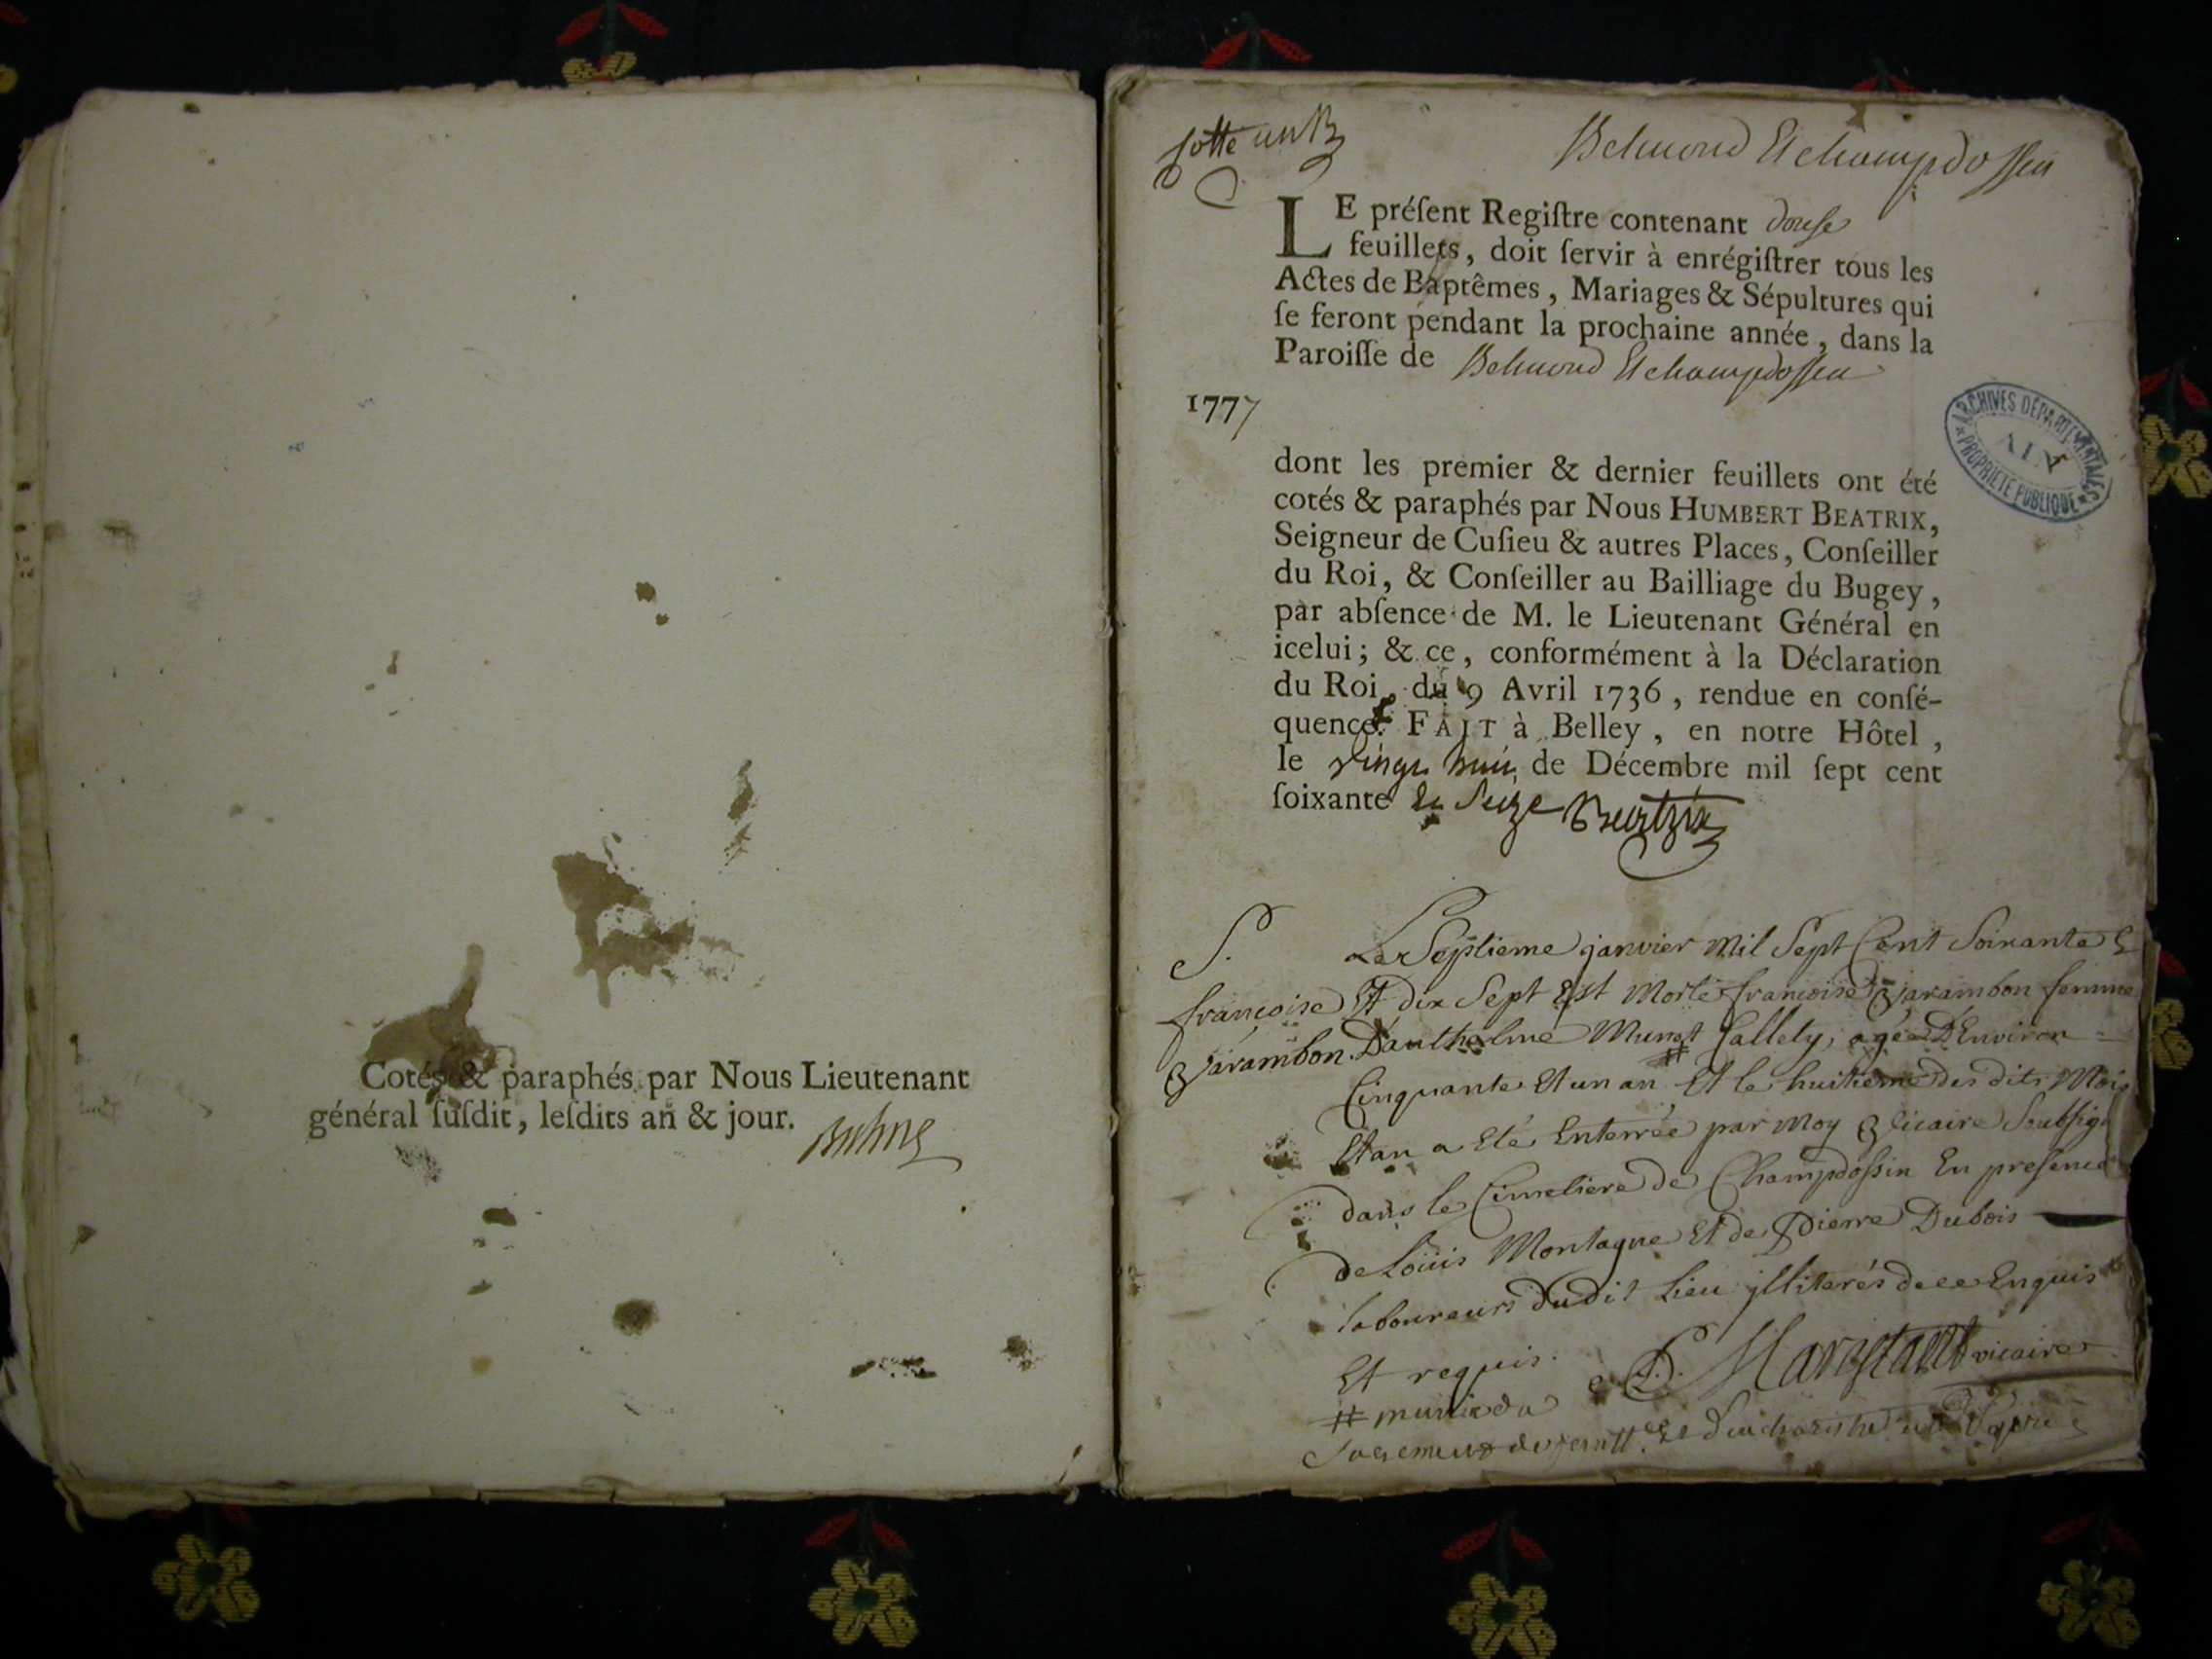 Cotés & paraphés par Nous Lieutenant
général ſuſdit, leſdits an & jour.
Cotte un
Belmond Et champdossin
LE préſent Regiſtre contenant douse
feuillets, doit ſervir à enrégiſtrer tous les
Actes de Baptêmes, Mariages & Sépultures qui
ſe feront pendant la prochaine année, dans la
Paroiſſe de Belmond Et champdossin
1777
dont les premier & dernier feuillets ont été
cotés & paraphés par Nous HUMBERT BEATRIX,
Seigneur de Cuſieu & autres Places, Conſeiller
du Roi, & Conſeiller au Bailliage du Bugey,
par abſence de M. le Lieutenant Général en
icelui; & ce, conformément à la Déclaration
du Roi, du 9 Avril 1736, rendue en conſé-
quence. FAIT à Belley, en notre Hôtel,
le vingt huit de Décembre mil ſept cent
ſoixante et Seize Beatrix
ARCHIVES DÉPARTEMENTALES
AIN
PROPRIÉTÉ PUBLIQUE
S.
françoise
Varambon
Le Septieme janvier mil Sept Cent Soixante
Et dix Sept Est Morte françoise Varambon femme
D'anthelme Munet Callety, agée D'Environ
Cinquante Et un an # Et le huitieme des dits Mois
Et an a Eté Enterrée par Moy Vicaire Soubsig
dans le Cimetiere de Champdossin En presence
de Loüis Montagne Et de Pierre Dubois
laboureurs dudit Lieu jlliterés de ce Enquis
Et requis.
vicaire
# munie du
Sacrement de